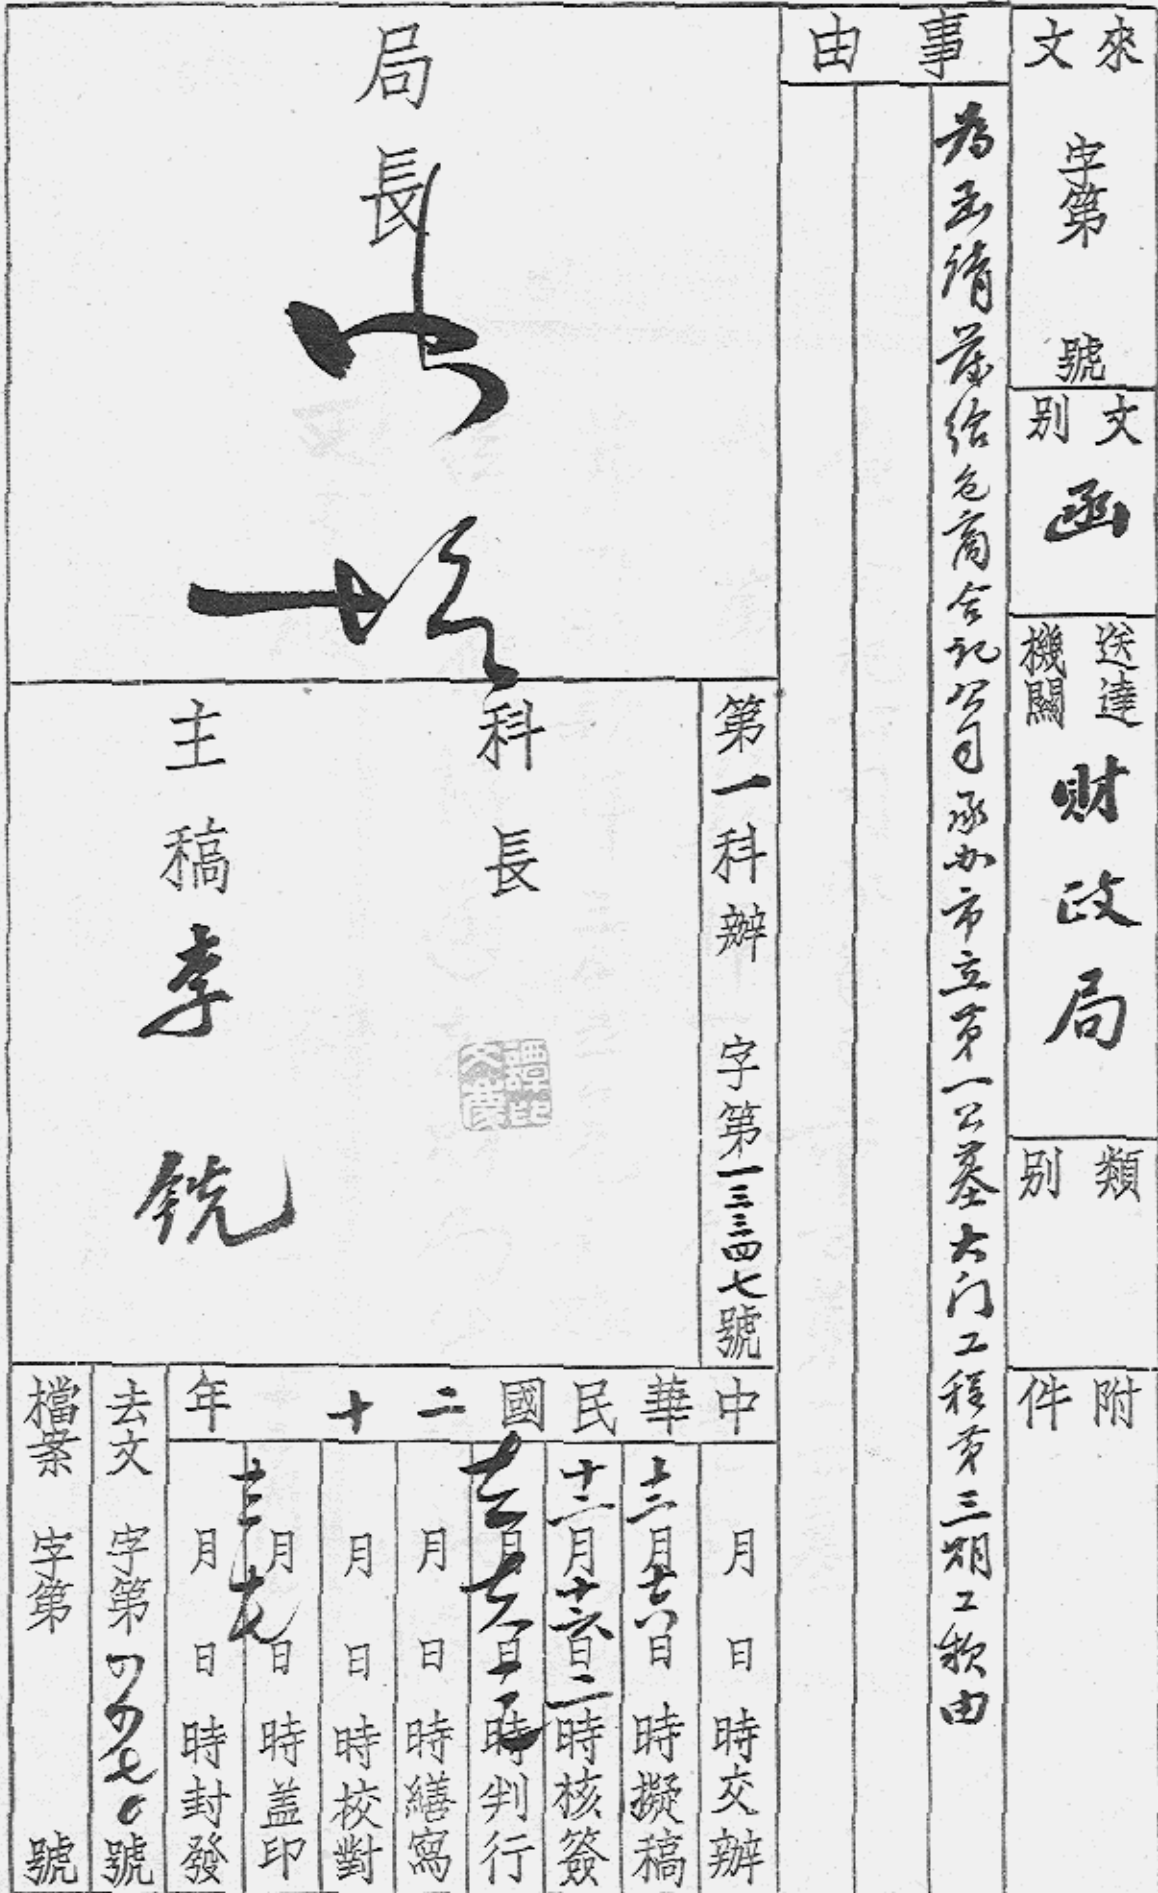 來文 字第 號
文別 函
送達機關 財政局
類別
附件
事由
為函請發給包商合記公司承办市立第一公墓大门工程第三期工款由
局長
第一科辦 字第一三三四七號
科長
譚文慶印
主稿 李銑
中華民國二十 年
月 日 時交辦
十二月十六日 時擬稿
十二月十六日二時核簽
月 日 時判行
月 日 時繕寫
月 日 時校對
月 日 時蓋印
月 日 時封發
去文 字第 號
檔案 字第 號